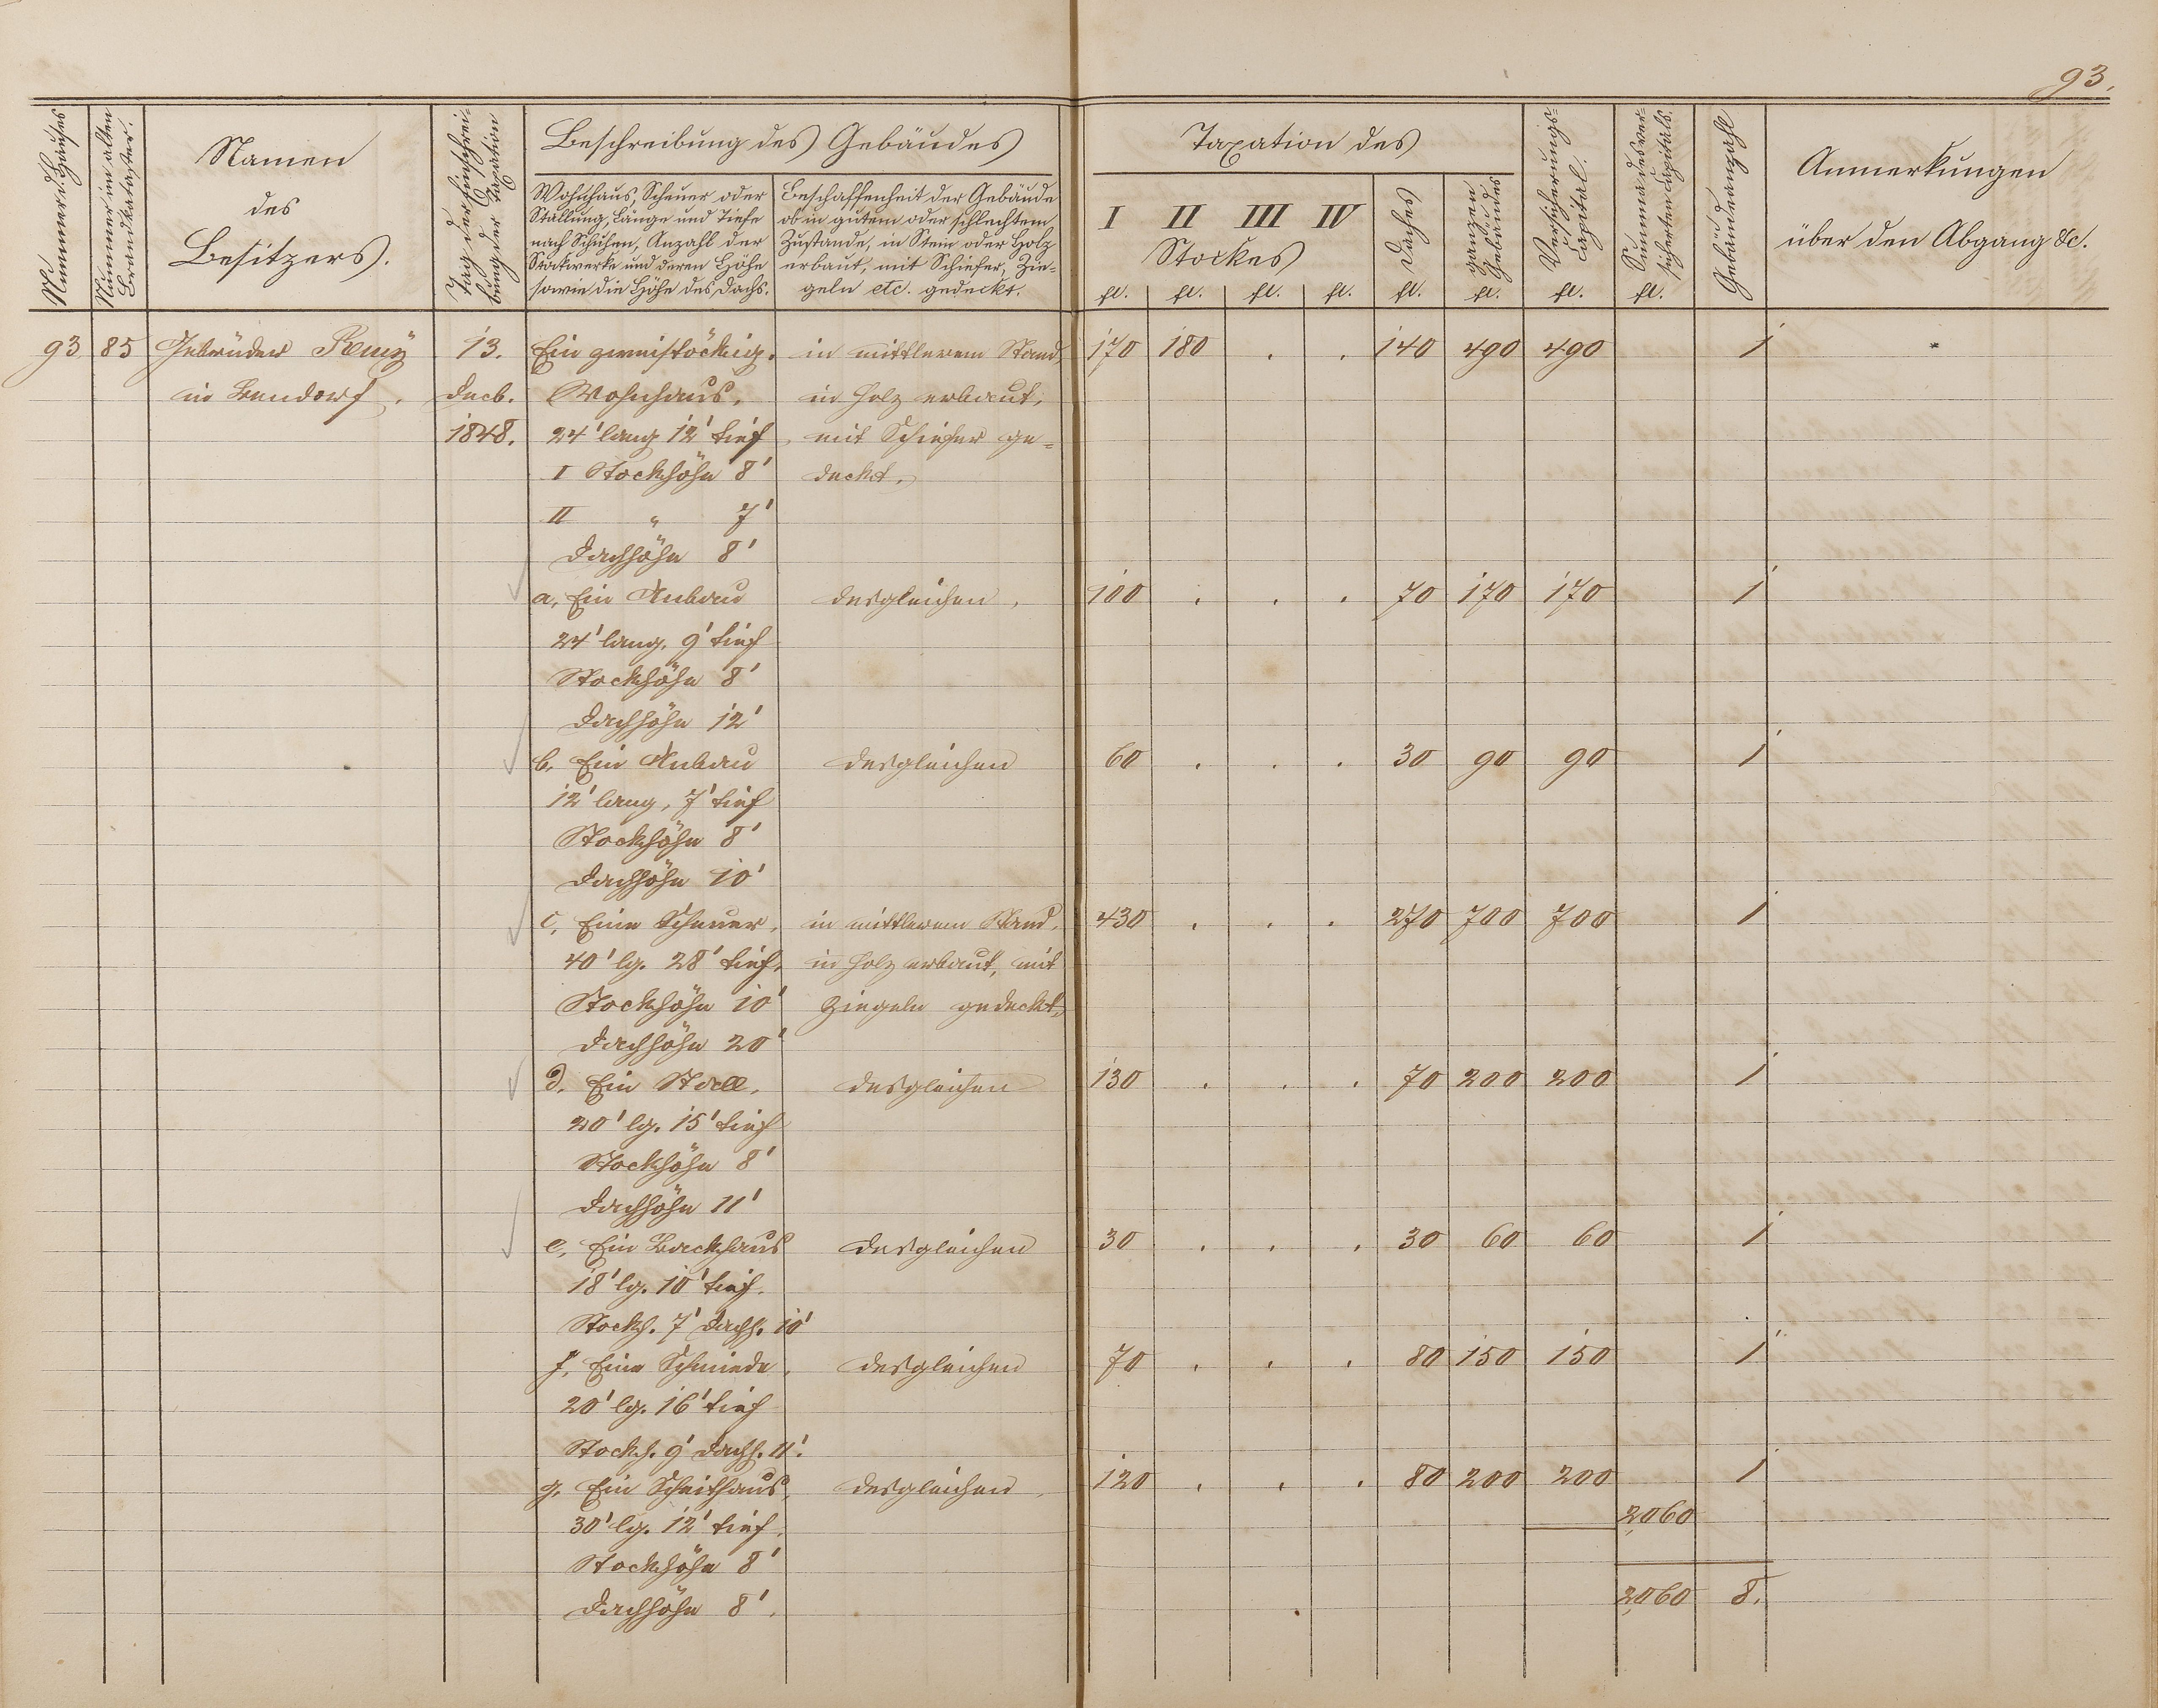 93.
Nummer d. Hauses
Nummer im alten Brandkataster.
Namen
des
Besitzers.
Tag der Einschrei-
bung der Taxation
Beschreibung des Gebäudes
Wohnhaus, Scheuer oder
Stallung, Länge und Tiefe
nach Schuhen, Anzahl der
Stockwerke und deren Höhe
sowie die Höhe des Dachs.
Beschaffenheit der Gebäude
ob in gutem oder schlechtem
Zustande, in Stein oder Holz
erbaut, mit Schiefer, Zie-
geln etc. gedeckt.
Taxation des
I II III IV
Stockes
Daches
ganzen
Gebäudes
Versicherungs-
Capital.
Summa des ver-
sicherten Capitals.
Gebäudeanzahl
Anmerkungen
über den Abgang &c.
fl. fl. fl. fl. fl. fl. fl. fl.
93 85 Gebrüder Remy 13. Ein zweistöckig. in mittlerem Stand, 170 180 . . 140 490 490 1
in Bendorf. Decb. Wohnhaus, in Holz erbaut,
1848. 24' lang 12' tief, mit Schiefer ge-
I Stockhöhe 8' deckt.
II " 7'
Dachhöhe 8'
a, Ein Anbau desgleichen, 100 . . . 70 170 170 1
24' lang, 9' tief
Stockhöhe 8'
Dachhöhe 12'
b, Ein Anbau desgleichen 60 . . . 30 90 90 1
12' lang, 7' tief
Stockhöhe 8'
Dachhöhe 10'
c, Eine Scheuer, in mittlerem Stand, 430 . . . 270 700 700 1
40' lg. 28' tief, in Holz erbaut, mit
Stockhöhe 10' Ziegeln gedeckt,
Dachhöhe 20'
d, Ein Stall, desgleichen 130 . . . 70 200 200 1
20' lg. 15' tief
Stockhöhe 8'
Dachhöhe 11'
e, Ein Backhaus desgleichen 30 . . . 30 60 60 1
18' lg. 10' tief.
Stockh. 7' Dachh. 10'
f, Eine Schmiede, desgleichen 70 . . . 80 150 150 1
20' lg. 16' tief
Stockh. 9' Dachh. 11'.
g, Ein Scheithaus, desgleichen, 120 . . . 80 200 200 1
30' lg. 12' tief. 2,060
Stockhöhe 8'
Dachhöhe 8'. 2,060 8.